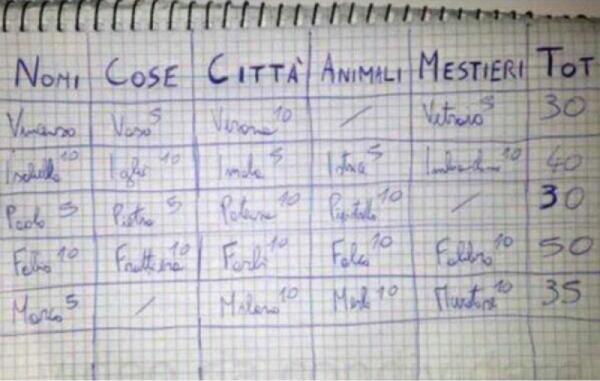 NOMI COSE CITTÀ ANIMALI MESTIERI TOT
Vincenzo Vaso 5 Verona 10 / Vetraio 5 30
Isabella 10 10 Imola 5 Istrice 5 10 40
Paolo 5 Pietra 5 Potenza 10 Pipistrello 10 / 30
Fabio 10 Fruttiera 10 Forlì 10 Falco 10 Fabbro 10 50
Marco 5 / Milano 10 Merlo 10 Muratore 10 35